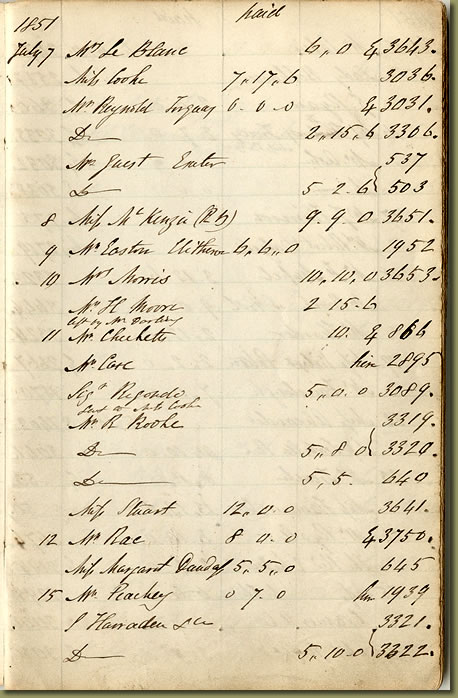 paid
1851
July 7 Mrs Le Blanc 6,, 0 & 3643.
Miss Cooke 7,, 17,, 6 3036.
Mr Reynold 6 . 0 . 0 & 3031.
Do 2,, 15,, 6 3306.
Mrs Guest Exeter 537
Do 5 2 . 6 } 503
8 Miss Mc Kenzie 9 . 9 . 0 3651.
9 Mr Easton 6,, 6,, 0 1952
10 Mrs Morris 10,, 10,, 0 3653.
Mr H Moore 2 15 . 6
11 Mr Chehetti 10 . & 866
Mr Case hire 2895
Sigr Regondi 5,, 0 . 0 3089.
Sent to Miss Cooke
Mr R Rooke 3319.
Do 5,, 8 0 } 3320.
Do 5,, 5 . 640
Miss Stuart 12,, 0 . 0 3641.
12 Mr Rae 8 0 . 0 & 3750.
Miss Margaret Dundas 5,, 5,, 0 645
15 Mr Peachey 0 7 . 0 hire 1939
J Harraden &c 3321.
Do 5,, 10 . 0 } 3322.